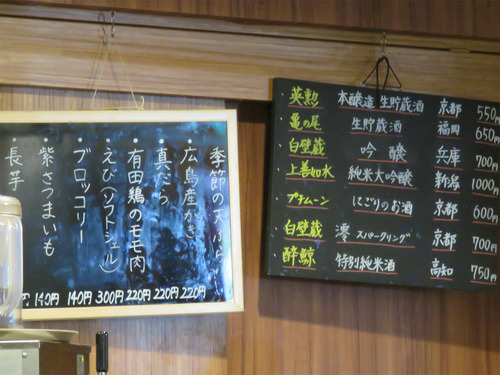 季節の天ぷら
・広島産かき 220円
・真だら 220円
・有田鶏のモモ肉 220円
・えび(ソフトシェル) 300円
・ブロッコリー 140円
・紫さつまいも 140円
・長芋
・英勲 本醸造 生貯蔵酒 京都 550円
・亀の尾 生貯蔵酒 福岡 650円
・白壁蔵 吟醸 兵庫 700円
・上善如水 純米大吟醸 新潟 1000
・プチムーン にごりのお酒 京都 600円
・白壁蔵 澪 スパークリング 京都 700円
・酔鯨 特別純米酒 高知 750円